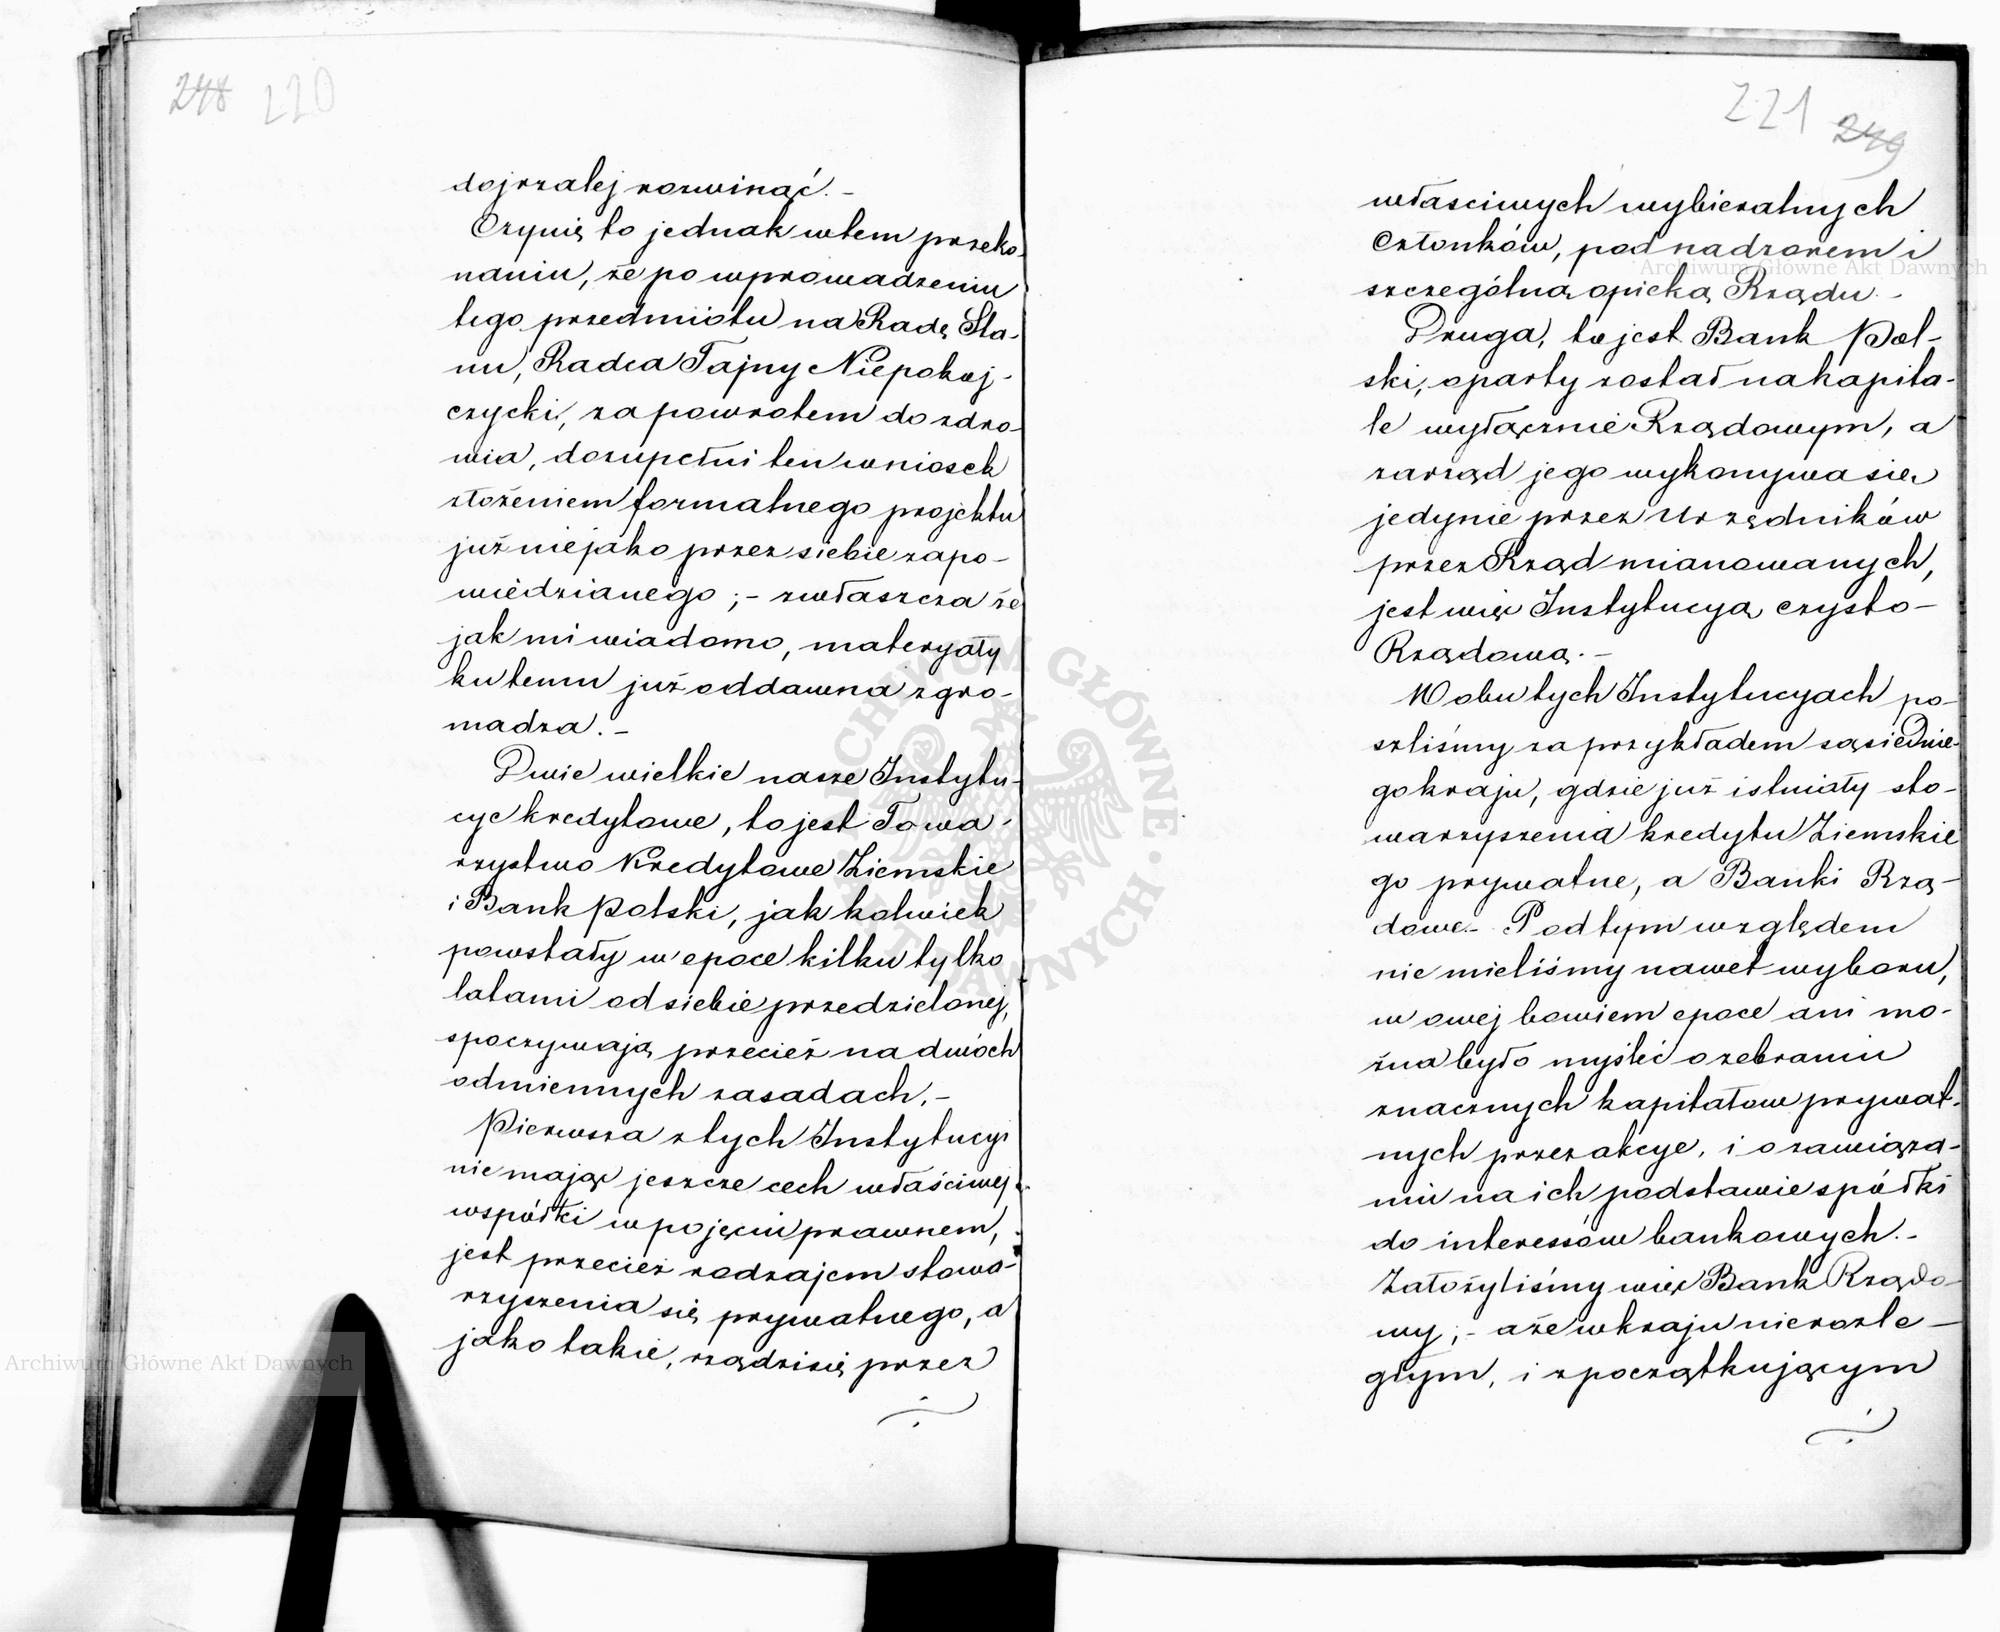 248 220
dojrzałej rozwinąć. –
Czynię to jednak w tem przeko-
naniu, że po wprowadzeniu
tego przedmiotu na Radę Sta-
nu, Radca Tajny Niepokoj-
czycki, za powrotem do zdro-
wia, dozupełni ten wniosek
złożeniem formalnego projektu
już niejako przez siebie zapo-
wiedzianego ; – zwłaszcza że
jak mi wiadomo, materyały
ku temu już oddawna zgro-
madza. –
Dwie wielkie nasze Instytu-
cye kredytowe, to jest Towa-
rzystwo Kredytowe Ziemskie
i Bank Polski, jak kolwiek
powstały w epoce kilku tylko
latami od siebie przedzielonej,
spoczywają przecież na dwóch
odmiennych zasadach. –
Pierwsza z tych Instytucyi
nie mając jeszcze cech właściwej
wspólki w pojęciu prawnem,
jest przecież rodzajem stowa-
rzyszenia się prywatnego, a
jako takie, rządzi się przez
221 249
właściwych wybieralnych
Członków, pod nadzorem i
szczególną opieką Rządu. –
Druga, to jest Bank Pol-
ski, oparty został na kapita-
le wyłącznie Rządowym, a
zarząd jego wykonywa się
jedynie przez Urzędników
przez Rząd mianowanych,
jest więc Instytucyą czysto –
Rządową. –
W obu tych Instytucyach po-
szliśmy za przykładem sąsiednie-
go kraju, gdzie już istniały sto-
warzyszenia kredytu Ziemskie
go prywatne, a Banki Rzą-
dowe. – Pod tym względem
nie mieliśmy nawet wyboru,
w owej bowiem epoce ani mo-
żna było myśleć o zebraniu
znacznych kapitałow prywat-
nych przez akcye, i o zawiąza-
niu na ich podstawie spółki
do interessów bankowych. –
Założyliśmy więc Bank Rządo-
wy ; – a że w kraju nierozle –
głym, i z początkującym
ARCHIWUM GŁÓWNE AKT DAWNYCH
Archiwum Główne Akt Dawnych
Archiwum Główne Akt Dawnych